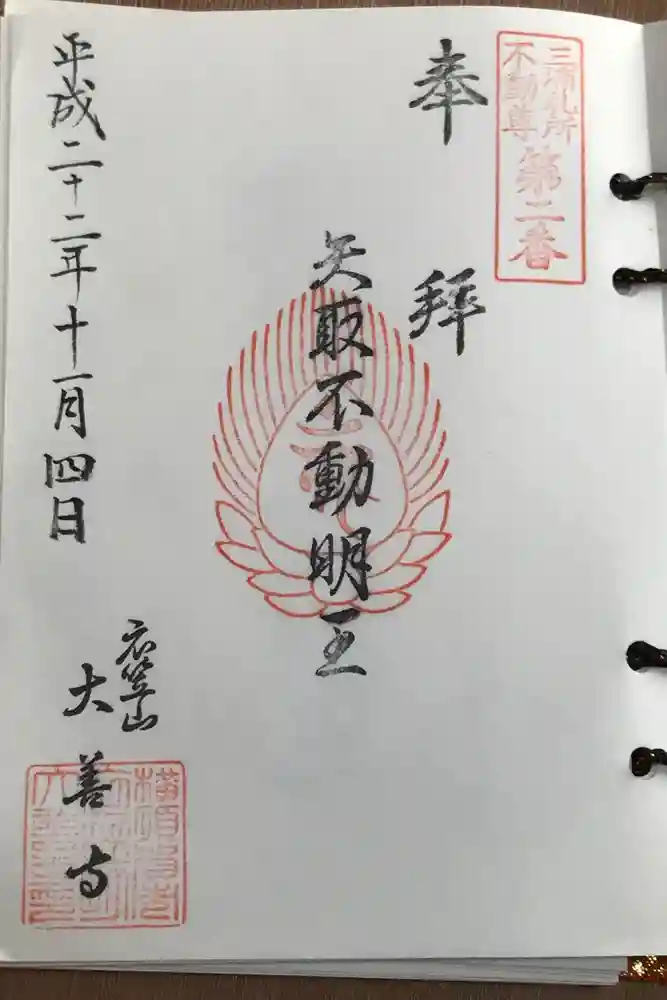 三浦札所
不動尊
第二番
奉拜
矢取不動明王
衣笠山
大善寺
平成二十二年十一月四日